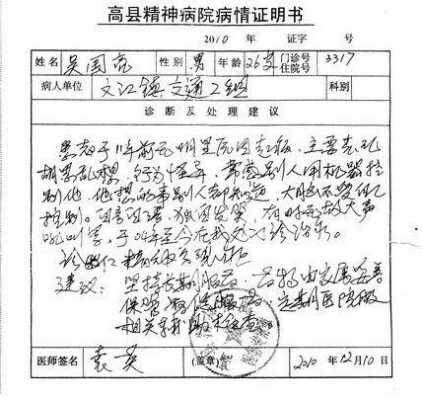 高县精神病院病情证明书
2010 年 证字 号
姓名 吴国亮 性别 男 年龄 26岁 门诊号 住院号 3317
病人单位 文江镇交通2组 科别
诊断及处理建议
患者于11年前无明显原因起病，主要表现
胡思乱想，行为怪异，常感别人用机器控
制他，他想的事别人都知道，大脑不受自己
控制。自言自语，独自发笑，有时无故大声
吼叫等，于04年至今在我处门诊治疗。
诊断：精神分裂症
建议：坚持长期服药，药物由家属妥善
保管，督促服药，定期医院做
相关
医师签名 袁英 (盖章) 2010 年 12 月 10 日